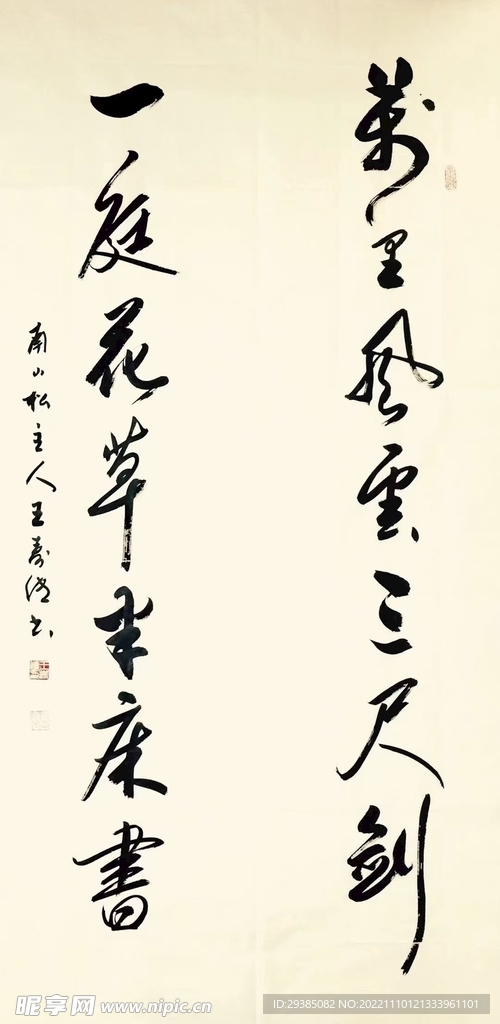 萬里風雲三尺劍
一庭花草半床書
南山松主人王壽僊書
昵享网 www.nipic.cn
ID:29385082 NO:20221110121333961101